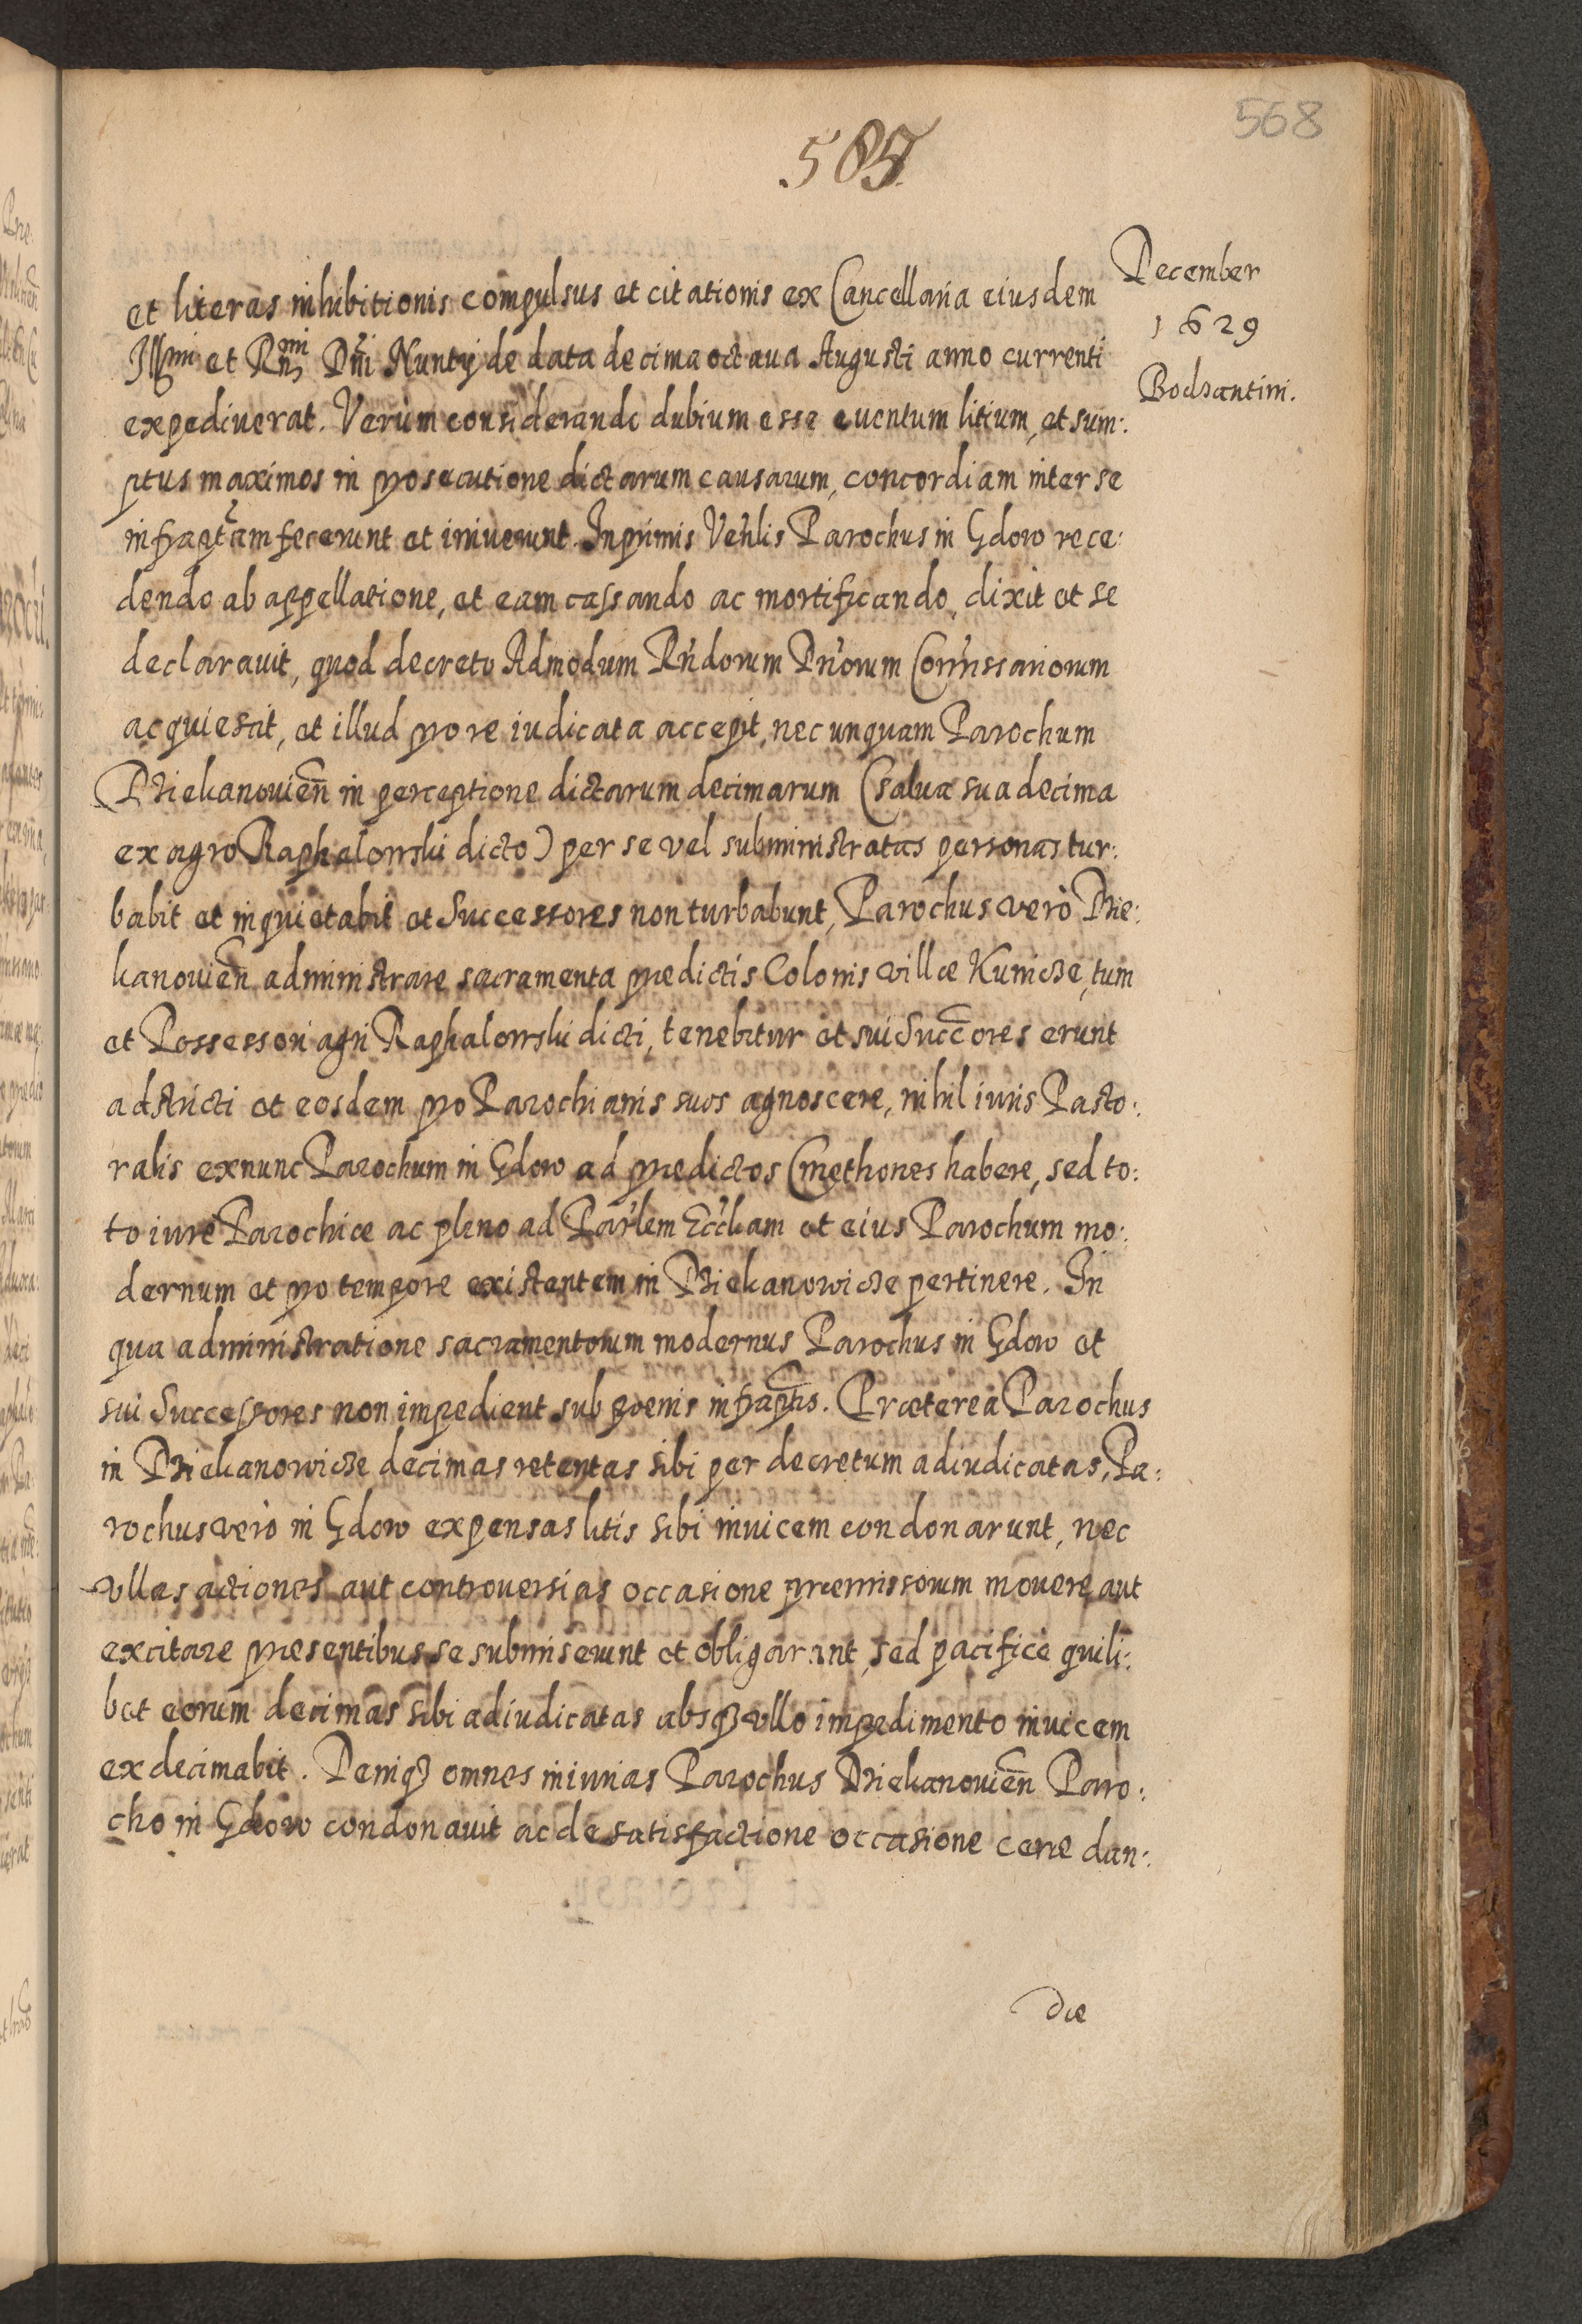 568
585
December
1629
Bodzantini.
et literas inhibitionis compulsus et citationis ex Cancellaria eiusdem
Illmi et Rndmi Dni Nuntij de data decima octaua Augusti anno currenti
expediuerat. Verùm considerando dubium esse euentum litium, et sum:
ptus maximos in prosecutione dictarum causarum, concordiam inter se
infraptam fecerunt et iniuerunt. Inprimis Vehlis Parochus in Gdow rece:
dendo ab appellatione, et eam cassando ac mortificando, dixit et se
declarauit, quod decreto Admodum Rndorum Dnorum Comissariorum
acquiescit, et illud pro re iudicata accepit, nec unquam Parochum
Dziekanouien in perceptione dictarum decimarum (salua sua decima
ex agro Raphalowski dicto) per se vel subministratas personas tur:
babit et inquietabit et Successores non turbabunt, Parochus verò Dzie:
kanouien administrare sacramenta prædictis Colonis villæ Kunicze, tum
et Possessori agri Raphalowski dicti, tenebitur et sui Succores erunt
adstricti et eosdem pro Parochianis suos agnoscere, nihil iuris Pasto:
ralis exnunc Parochum in Gdow ad prædictos Cmethones habere, sed to:
to iure Parochiæ ac pleno ad Parlem Eccliam et eius Parochum mo:
dernum et pro tempore existentem in Dziekanowicze pertinere. In
qua administratione sacramentorum modernus Parochus in Gdow et
sui Successores non impedient sub poenis infraptis. Præterea Parochus
in Dziekanowicze decimas retentas sibi per decretum adiudicatas, Pa:
rochus verò in Gdow expensas litis sibi inuicem condonarunt, nec
vllas actiones aut controuersias occasione præmissorum mouere aut
excitare præsentibus se submiserunt et obligarunt, sed pacificè quili:
bet eorum decimas sibi adiudicatas absq3 vllo impedimento inuicem
exdecimabit. Deniq3 omnes iniurias Parochus Dziekanouien Paro:
cho in Gdow condonauit ac de satisfactione occasione ceræ dan:
dæ